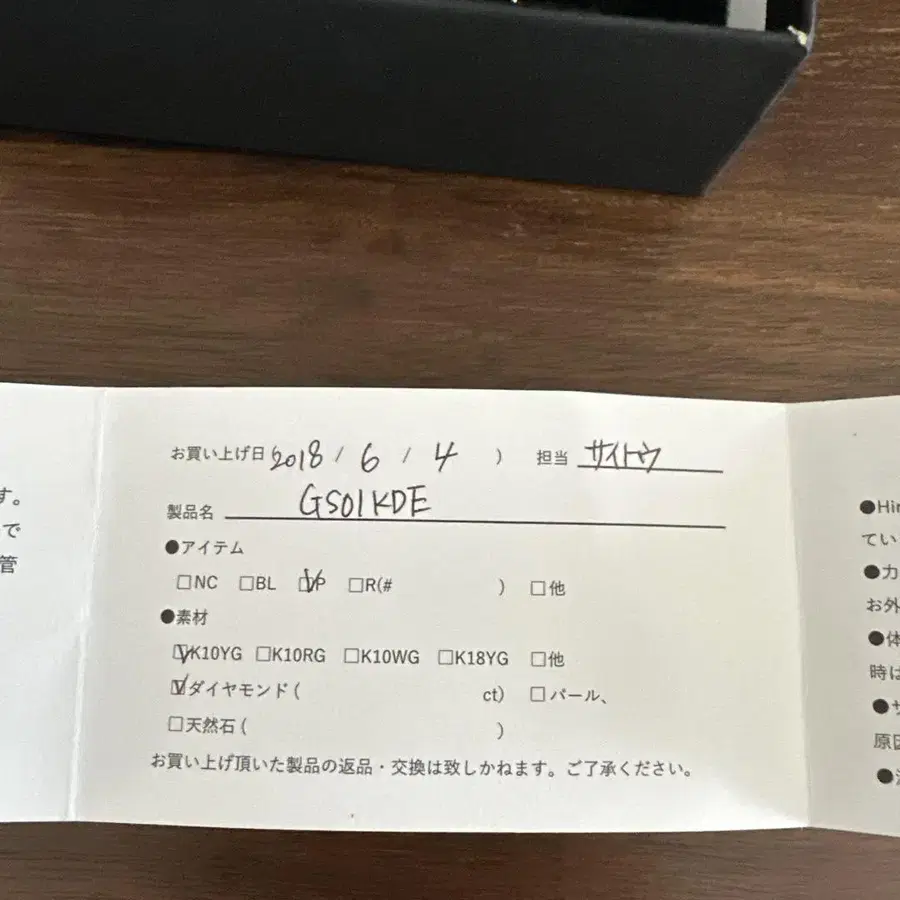 お買い上げ日(2018 / 6 / 4 ) 担当 サイトウ
製品名 GS01KDE
●アイテム
□NC □BL ☑P □R(# ) □他
●素材
☑K10YG □K10RG □K10WG □K18YG □他
☑ダイヤモンド( ct) □パール、
□天然石( )
お買い上げ頂いた製品の返品・交換は致しかねます。ご了承ください。
す。
で
管
●Hir
てい
●力
お外
●体
時は
●サ
原因